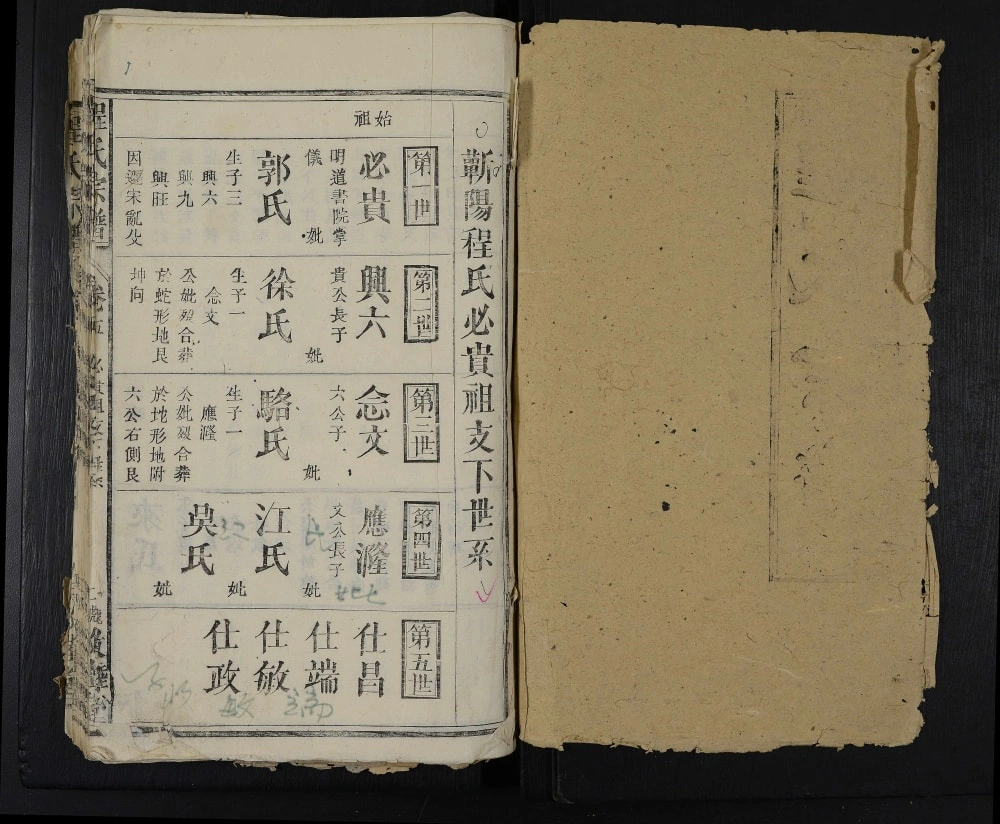 蘄陽程氏必貴祖支下世系
始祖
第一世
必貴
明道書院掌
儀
妣
郭氏
生子三
興六
興九
興旺
因遭宋亂父
第二世
興六
貴公長子
妣
徐氏
生子一
念文
公妣歿合葬
於蛇形地艮
坤向
第三世
念文
六公子
妣
駱氏
生子一
應瀣
公妣歿合葬
於地形地附
六公右側艮
第四世
應瀣
文公長子
妣
江氏
妣
吳氏
妣
第五世
仕昌
仕端
仕敏
仕政
敏
端
程氏宗譜
卷五
必貴祖支下世系